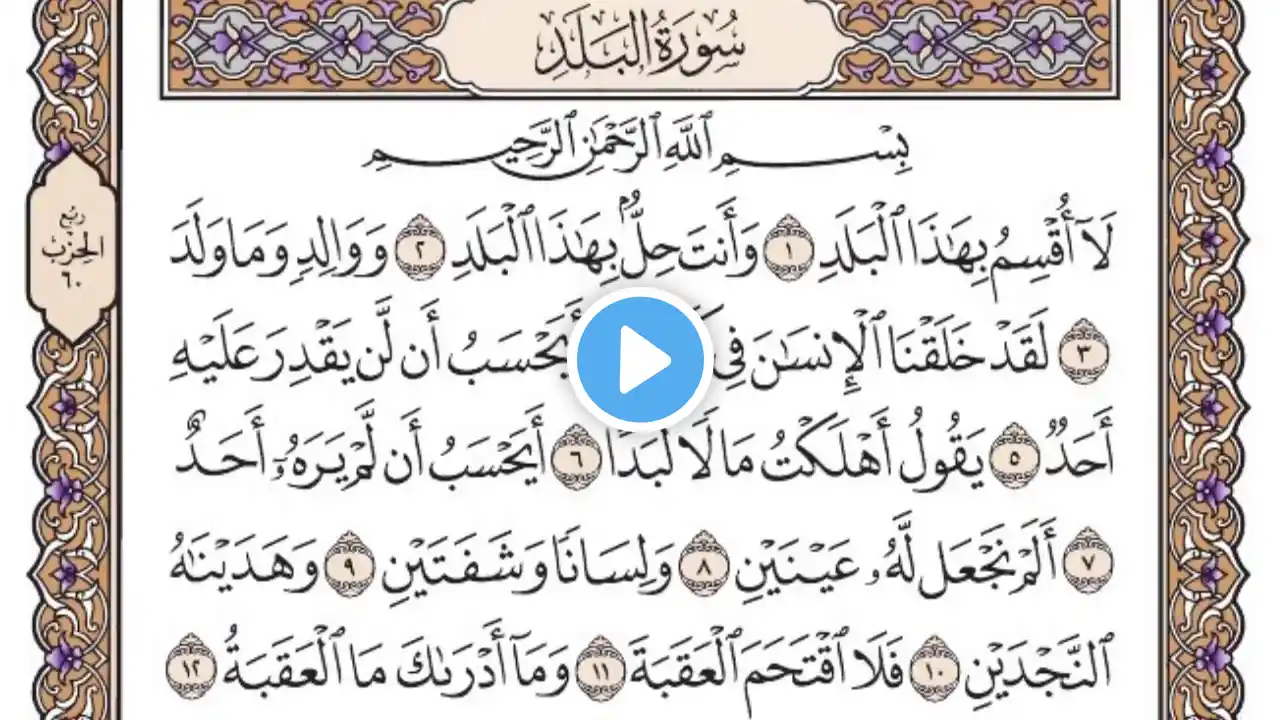 سُورَةُ الْبَلَدِ
بِسْمِ ٱللَّهِ ٱلرَّحْمَٰنِ ٱلرَّحِيمِ
رُبْع
الحِزْب
٦٠
لَآ أُقْسِمُ بِهَٰذَا ٱلْبَلَدِ ١ وَأَنتَ حِلٌّۢ بِهَٰذَا ٱلْبَلَدِ ٢ وَوَالِدٍ وَمَا وَلَدَ
٣ لَقَدْ خَلَقْنَا ٱلْإِنسَٰنَ فِى أَيَحْسَبُ أَن لَّن يَقْدِرَ عَلَيْهِ
أَحَدٌ ٥ يَقُولُ أَهْلَكْتُ مَالًا لُّبَدًا ٦ أَيَحْسَبُ أَن لَّمْ يَرَهُۥٓ أَحَدٌ
٧ أَلَمْ نَجْعَل لَّهُۥ عَيْنَيْنِ ٨ وَلِسَانًا وَشَفَتَيْنِ ٩ وَهَدَيْنَٰهُ
ٱلنَّجْدَيْنِ ١٠ فَلَا ٱقْتَحَمَ ٱلْعَقَبَةَ ١١ وَمَآ أَدْرَىٰكَ مَا ٱلْعَقَبَةُ ١٢